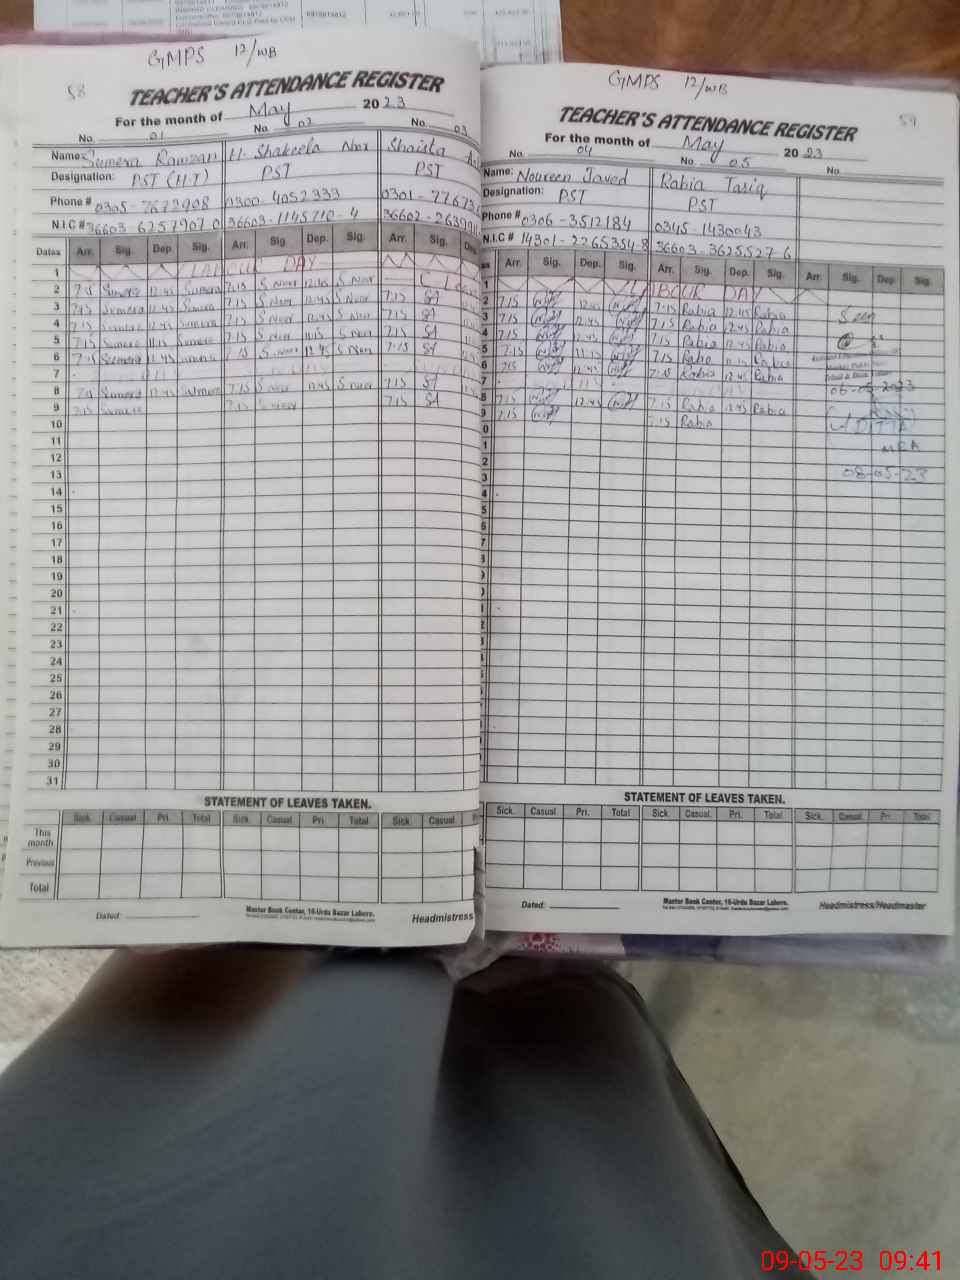 GMPS 12/WB
58
TEACHER'S ATTENDANCE REGISTER
For the month of May 2023
No. 01 No. 02 No. 03
Name: Sumera Ramzan H. Shakeela Noor Shaista
Designation: PST (H.T) PST PST
Phone # 0305-7672908 0300-4052333 0301-
N.I.C # 36603-6257907 0 36603-1145710-4 36602-
Dates Arr. Sig. Dep. Sig. Arr. Sig. Dep. Sig. Arr. Sig. Dep
1 LABOUR DAY
2 7:15 Sumera 12:45 Sumera 7:15 S Noor 12:45 S Noor C Leave
3 7:15 Sumera 12:45 Sumera 7:15 S Noor 12:45 S Noor 7:15
4 7:15 Sumera 12:45 Sumera 7:15 S Noor 12:45 S Noor 7:15
5 7:15 Sumera 11:15 Sumera 7:15 S Noor 11:15 S Noor 7:15
6 7:15 Sumera 12:45 Sumera 7:15 S Noor 12:45 S Noor 7:15
7
8 7:15 Sumera 12:45 Sumera 7:15 S Noor 12:45 S Noor 7:15
9 7:15 Sumera 7:15 S Noor 7:15
10
11
12
13
14
15
16
17
18
19
20
21
22
23
24
25
26
27
28
29
30
31
STATEMENT OF LEAVES TAKEN.
Sick. Casual Pri. Total Sick. Casual. Pri. Total Sick. Casual
This month
Previous
Total
Dated: Master Book Center, 16-Urdu Bazar Lahore. Headmistress
GMPS 12/WB
59
TEACHER'S ATTENDANCE REGISTER
For the month of May 2023
No. 04 No. 05 No.
Name: Noureen Javed Rabia Tariq
Designation: PST PST
Phone # 0306-3512184 0345-1430043
N.I.C # 14301-2265354-8 36603-3625527 6
Arr. Sig. Dep. Sig. Arr. Sig. Dep. Sig. Arr. Sig. Dep Sig.
LABOUR DAY
2 7:15 12:45 7:15 Rabia 12:45 Rabia
3 7:15 12:45 7:15 Rabia 12:45 Rabia Seen
4 7:15 12:45 7:15 Rabia 12:45 Rabia
5 7:15 11:15 7:15 Rabia 11:15 Rabia
6 7:15 12:45 7:15 Rabia 12:45 Rabia
7 06-05-2023
8 7:15 12:45 7:15 Rabia 12:45 Rabia
9 7:15 7:15 Rabia
MEA
08-05-23
STATEMENT OF LEAVES TAKEN.
Sick. Casual Pri. Total Sick. Casual. Pri. Total Sick. Casual. Pri. Total
Dated: Master Book Center, 16-Urdu Bazar Lahore. Headmistress/Headmaster
09-05-23 09:41